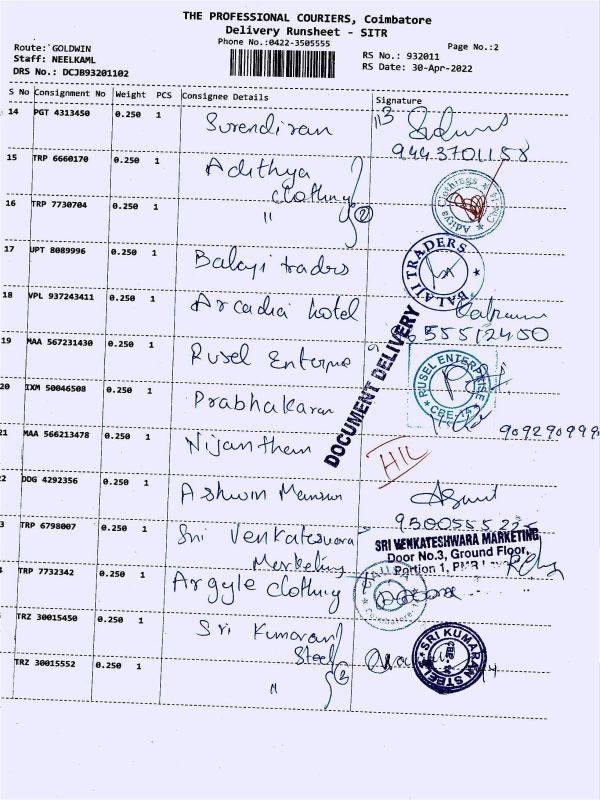 THE PROFESSIONAL COURIERS, Coimbatore
Delivery Runsheet - SITR
Phone No.:0422-3505555
Page No.:2
Route: GOLDWIN
Staff: NEELKAML
DRS No.: DCJB93201102
RS No.: 932011
RS Date: 30-Apr-2022
S No Consignment No Weight PCS Consignee Details Signature
14 PGT 4313450 0.250 1 Surendiran
9443701158
15 TRP 6660170 0.250 1 Adithya
clothing
16 TRP 7730704 0.250 1 " (2)
Aditya Clothings
17 UPT 8089996 0.250 1 Balaji traders
BALAJI TRADERS
18 VPL 937243411 0.250 1 Arcadia hotel
DOCUMENT DELIVERY
19 MAA 567231430 0.250 1 Rusel Enterprise
RUSEL ENTERPRISE
CBE-14
20 IXM 50046508 0.250 1 Prabhakaran
909290999
21 MAA 566213478 0.250 1 Nijanthan
HIL
2 DDG 4292356 0.250 1 Ashwin
9500555225
3 TRP 6798007 0.250 1 Sri Venkateswara
Marketing
SRI VENKATESHWARA MARKETING
Door No.3, Ground Floor,
Portion 1,
TRP 7732342 0.250 1 Argyle clothing
Coimbatore
TRZ 30015450 0.250 1 Sri Kumaran
Steel
SRI KUMARAN STEELS
TRZ 30015552 0.250 1 " (2)